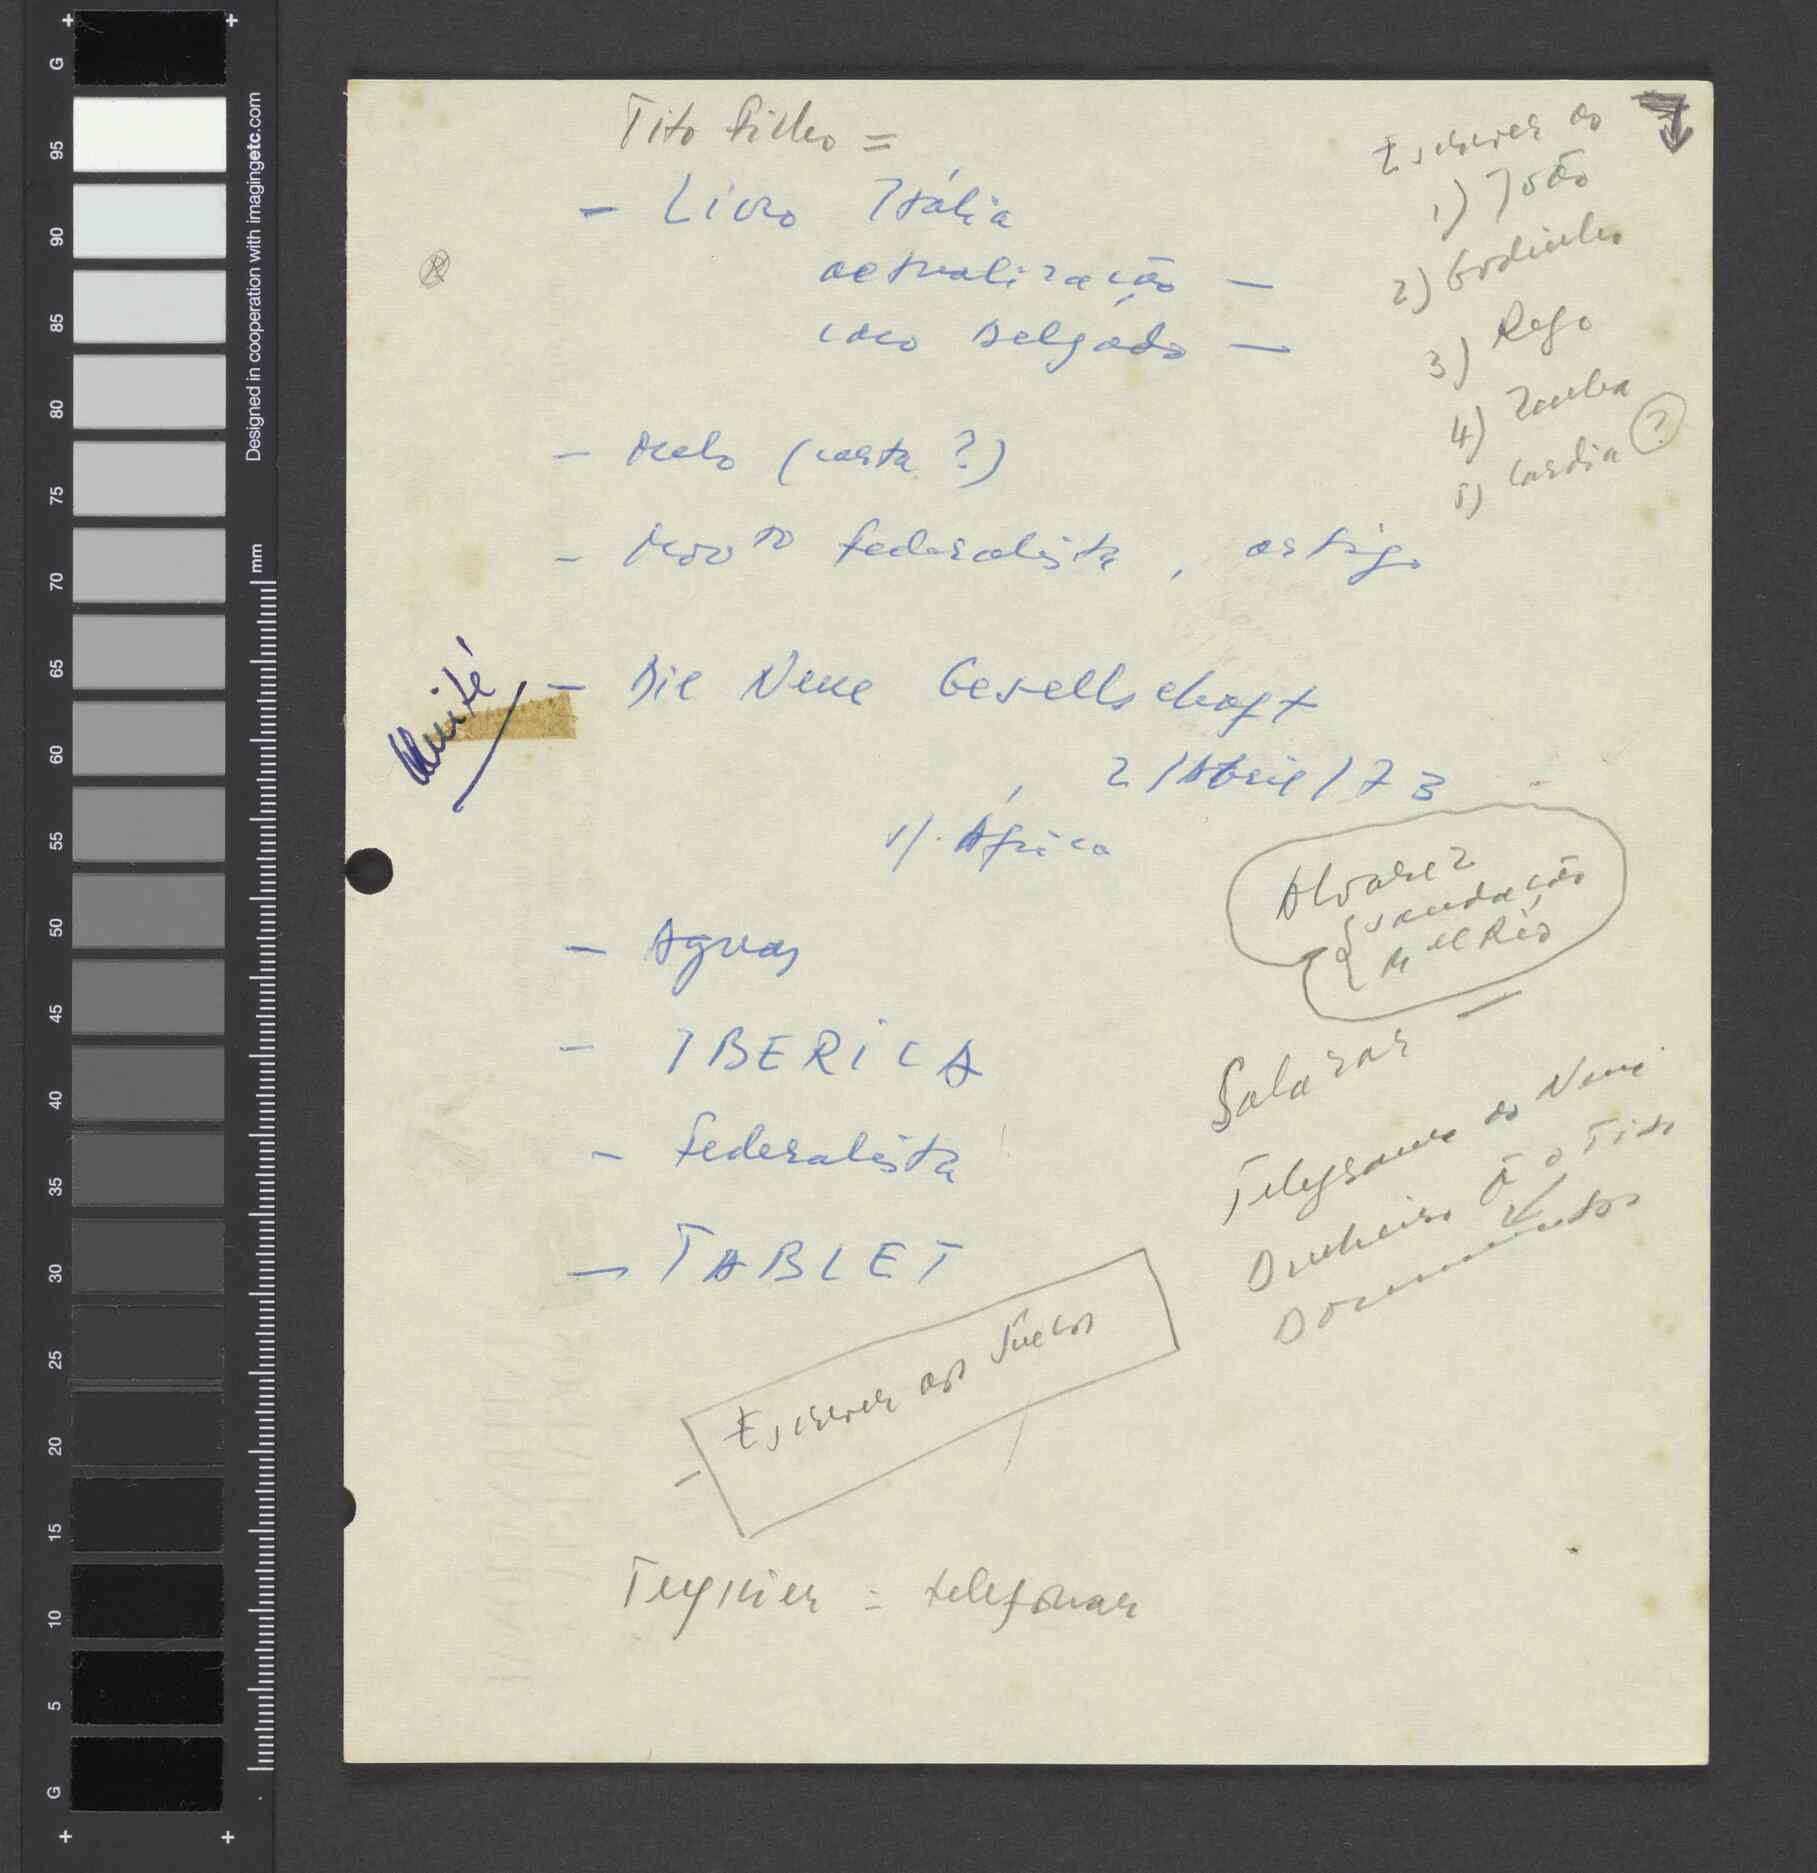 Tito Filho =
- Livro Itália
actualização -
caso Delgado -
- Melo (carta ?)
- Movto federalista, artigo
Unité
- Die Neue Gesellschaft
2/Abril/73
s/. África
- Aguas
- IBERICA
- federalista
- TABLET
Escrever aos Suecos
Teyssier = telefonar
Escrever ao
1) João
2) Godinho
3) Rego
4) Zenha
5) Cardia ?
Alvarez
saudação
M el Rio
Salazar
Telegrama ao
Dinheiro p o Tito
Documentos
Designed in cooperation with imagingetc.com
mm
G
95
90
85
80
75
70
65
60
55
50
45
40
35
30
25
20
15
10
5
G